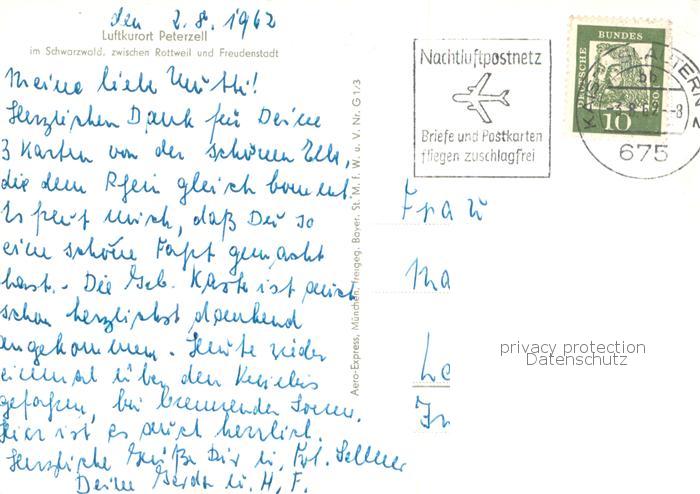 den 2.8.1962
Luftkurort Peterzell
im Schwarzwald, zwischen Rottweil und Freudenstadt
Meine liebe Mutti!
Herzlichen Dank für Deine
3 Karten von der schönen Elb,
die dem Rhein gleich kommt.
Es freut mich, daß Du so
eine schöne Fahrt gemacht
hast. - Die Geb. Karte ist auch
schon herzlichst dankend
angekommen. Heute wieder
einmal über den Kniebis
gefahren, bei brennender Sonne.
Hier ist es auch herrlich.
Herzliche Grüße Dir u.
Deine Gerda u. H. F.
Aero-Express, München, freigeg. Bayer. St. M. f. W. u. V. Nr. G 1/3
Nachtluftpostnetz
Briefe und Postkarten
fliegen zuschlagfrei
DEUTSCHE BUNDESPOST
10
bb
-3.8.62--8
675
Frau
Ma
privacy protection
Datenschutz